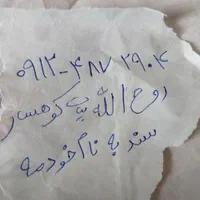 ۰۹۱۲-۴۸۷۲۹۰۴
روح الله پی کوهسار
سند به نام خودمه